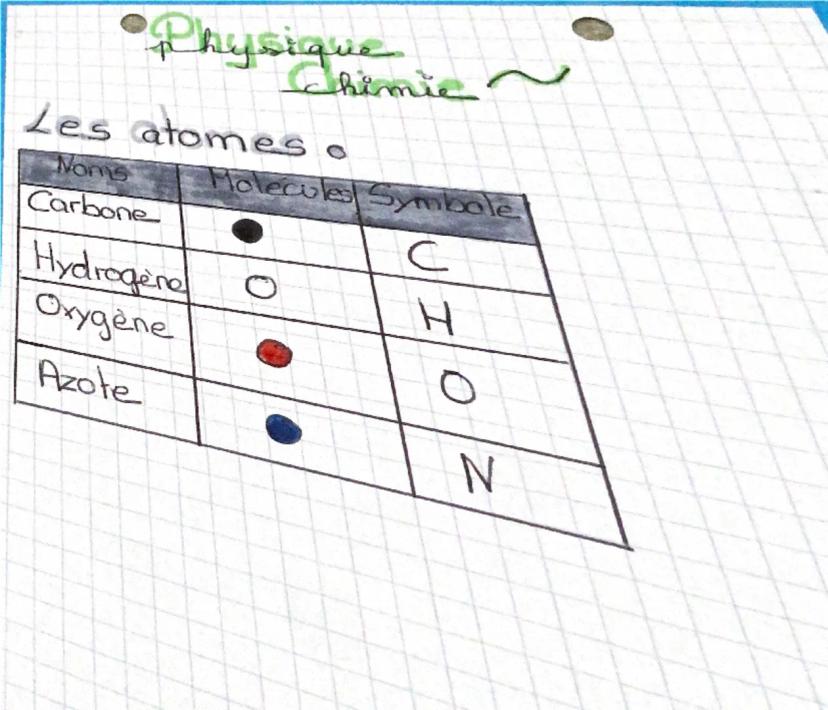 Physique
Chimie
Les atomes
Noms Molécules Symbole
Carbone C
Hydrogène H
Oxygène O
Azote N